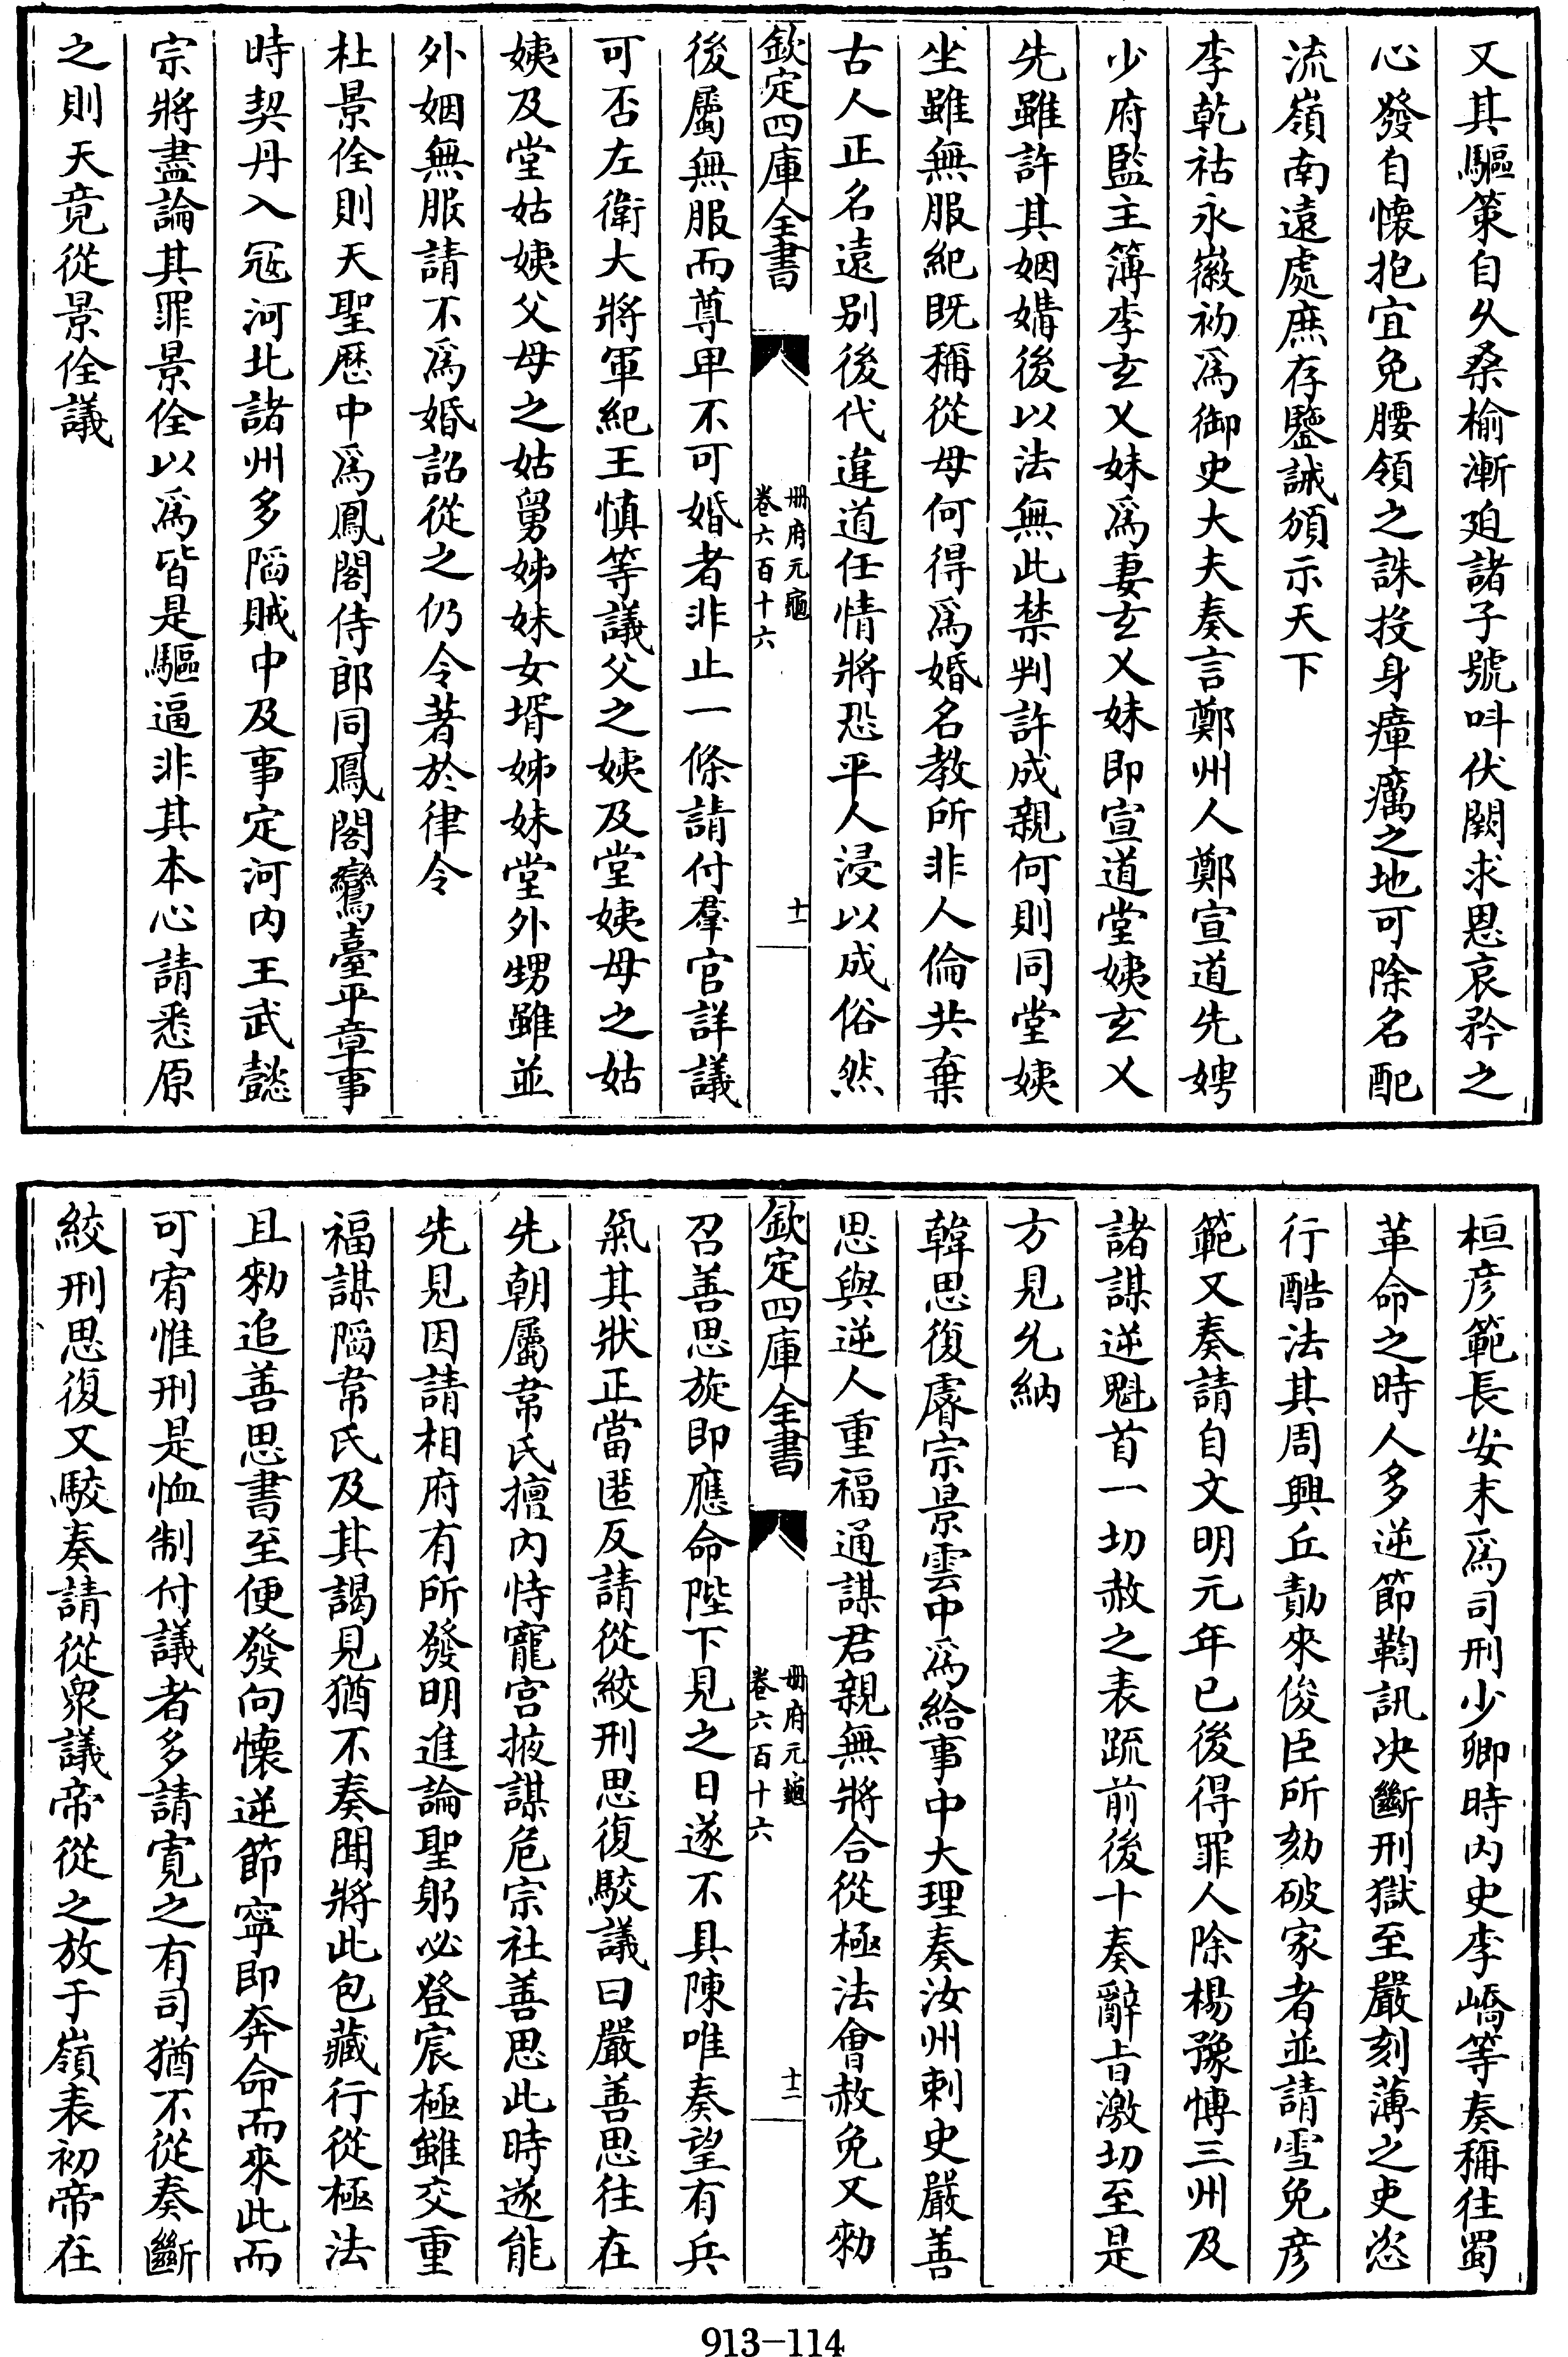 又其驅策自久桑榆漸迫諸子號呌伏闕求恩哀矜之
心發自懐抱宜免腰領之誅投身瘴癘之地可除名配
流嶺南遠處庶存鑒誡頒示天下
李乾祐永徽初為御史大夫奏言鄭州人鄭宣道先娉
少府監主簿李玄乂妹為妻玄乂妹即宣道堂姨玄乂
先雖許其姻媾後以法無此禁判許成親何則同堂姨
坐雖無服紀既稱從母何得為婚名教所非人倫共棄
古人正名遠别後代違道任情將恐平人浸以成俗然
欽定四庫全書
冊府元龜
卷六百十六
十一
後屬無服而尊卑不可婚者非止一條請付羣官詳議
可否左衛大將軍紀王慎等議父之姨及堂姨母之姑
姨及堂姑姨父母之姑舅姊妹女壻姊妹堂外甥雖並
外姻無服請不為婚詔從之仍令著於律令
杜景佺則天聖歴中為鳳閣侍郎同鳳閣鸞臺平章事
時契丹入冦河北諸州多䧟賊中及事定河内王武懿
宗將盡論其罪景佺以為皆是驅逼非其本心請悉原
之則天竟從景佺議
桓彦範長安末為司刑少卿時内史李嶠等奏稱往蜀
革命之時人多逆節鞫訊决斷刑獄至嚴刻薄之吏恣
行酷法其周興丘勣來俊臣所劾破家者並請雪免彦
範又奏請自文明元年已後得罪人除楊豫愽三州及
諸謀逆魁首一切赦之表疏前後十奏辭㫖激切至是
方見允納
韓思復睿宗景雲中為給事中大理奏汝州刺史嚴善
思與逆人重福通謀君親無將合從極法會赦免又勑
欽定四庫全書
冊府元龜
卷六百十六
十二
召善思旋即應命陛下見之日遂不具陳唯奏望有兵
氣其狀正當匿反請從絞刑思復駮議曰嚴善思往在
先朝屬韋氏擅内恃寵宫掖謀危宗社善思此時遂能
先見因請相府有所發明進論聖躬必登宸極雖交重
福謀䧟韋氏及其謁見猶不奏聞將此包藏行從極法
且勑追善思書至便發向懐逆節寜即奔命而來此而
可宥惟刑是恤制付議者多請寛之有司猶不從奏斷
絞刑思復又駮奏請從衆議帝從之放于嶺表初帝在
913-114